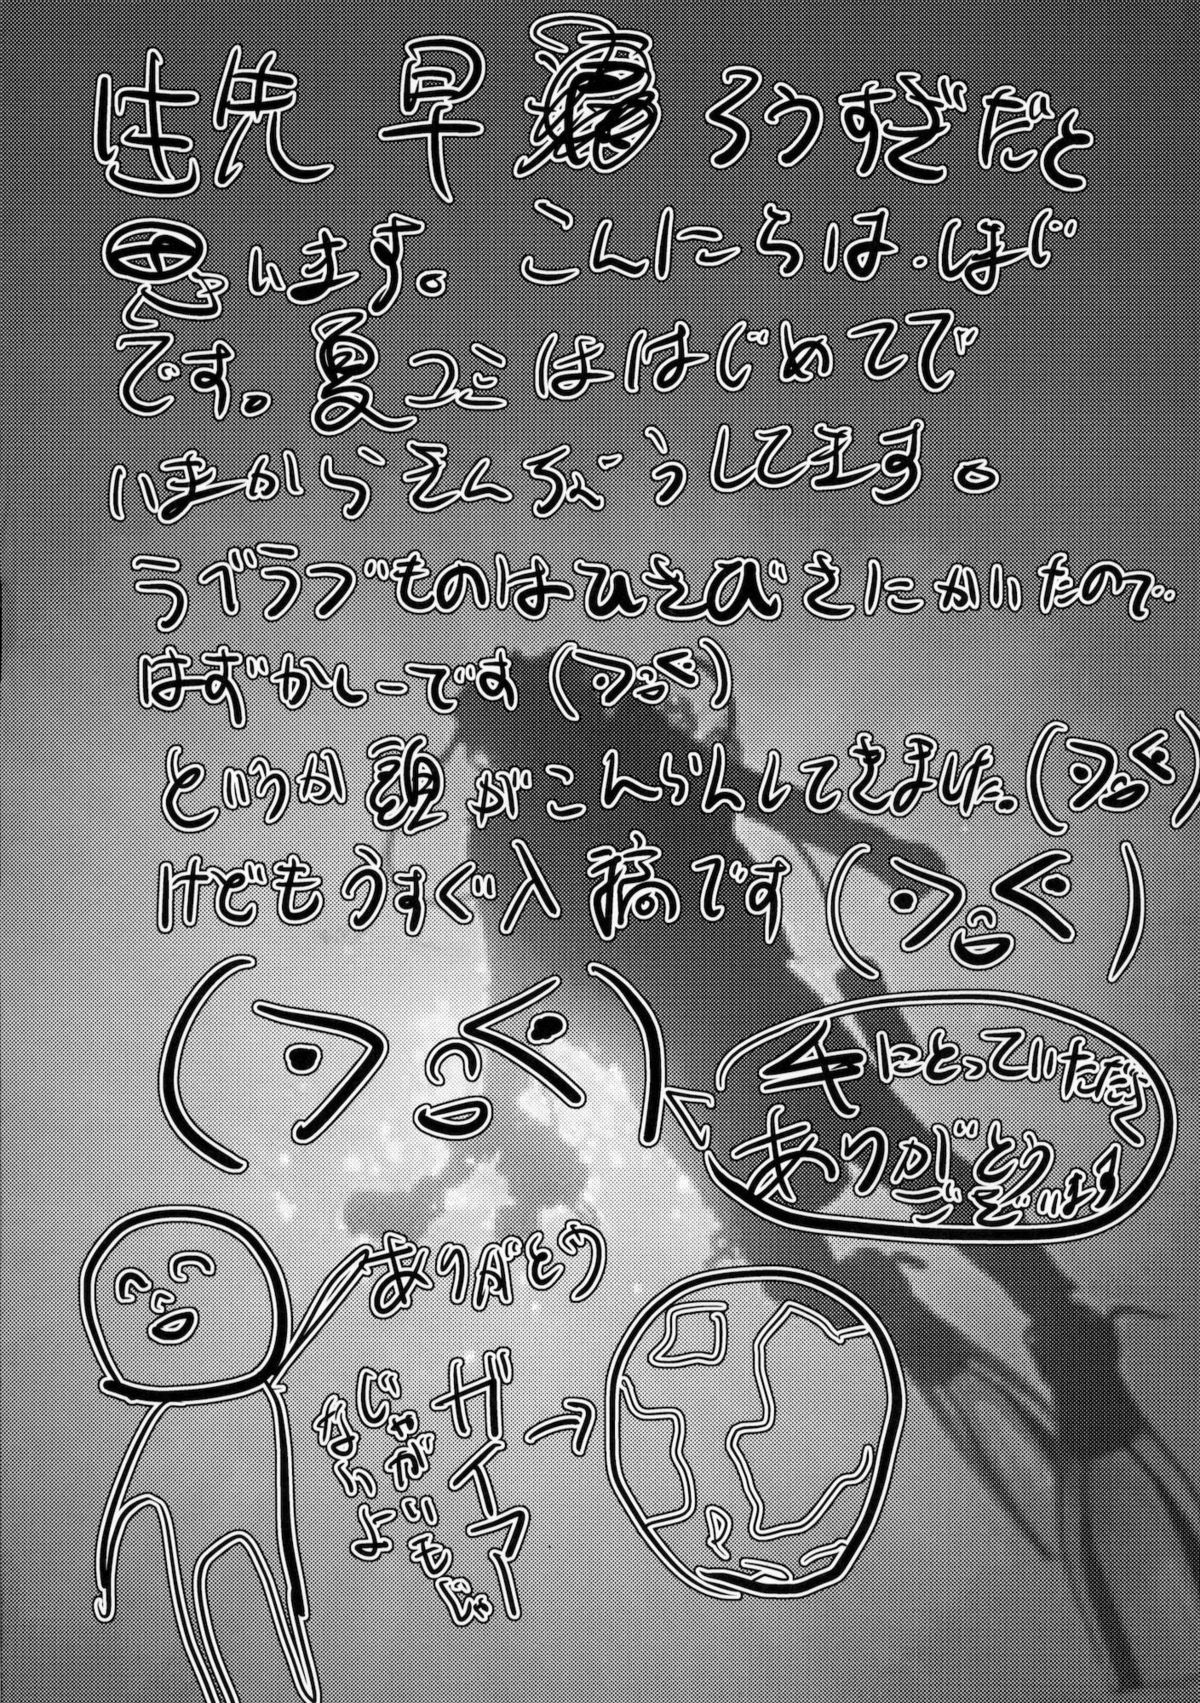 早 ろうすぎだと
思います。 こんにちは。はじ
です。夏コミははじめてで
いまからぞんぶうしてます。
ラブラブものはひさびさにかいたので
はずかしーです
というか頭がこんらんしてきました。
けどもうすぐ入稿です
手にとっていただく
ありがとう
ございます
ありがとう
ガイアー
じゃがいもじゃ
ないよ